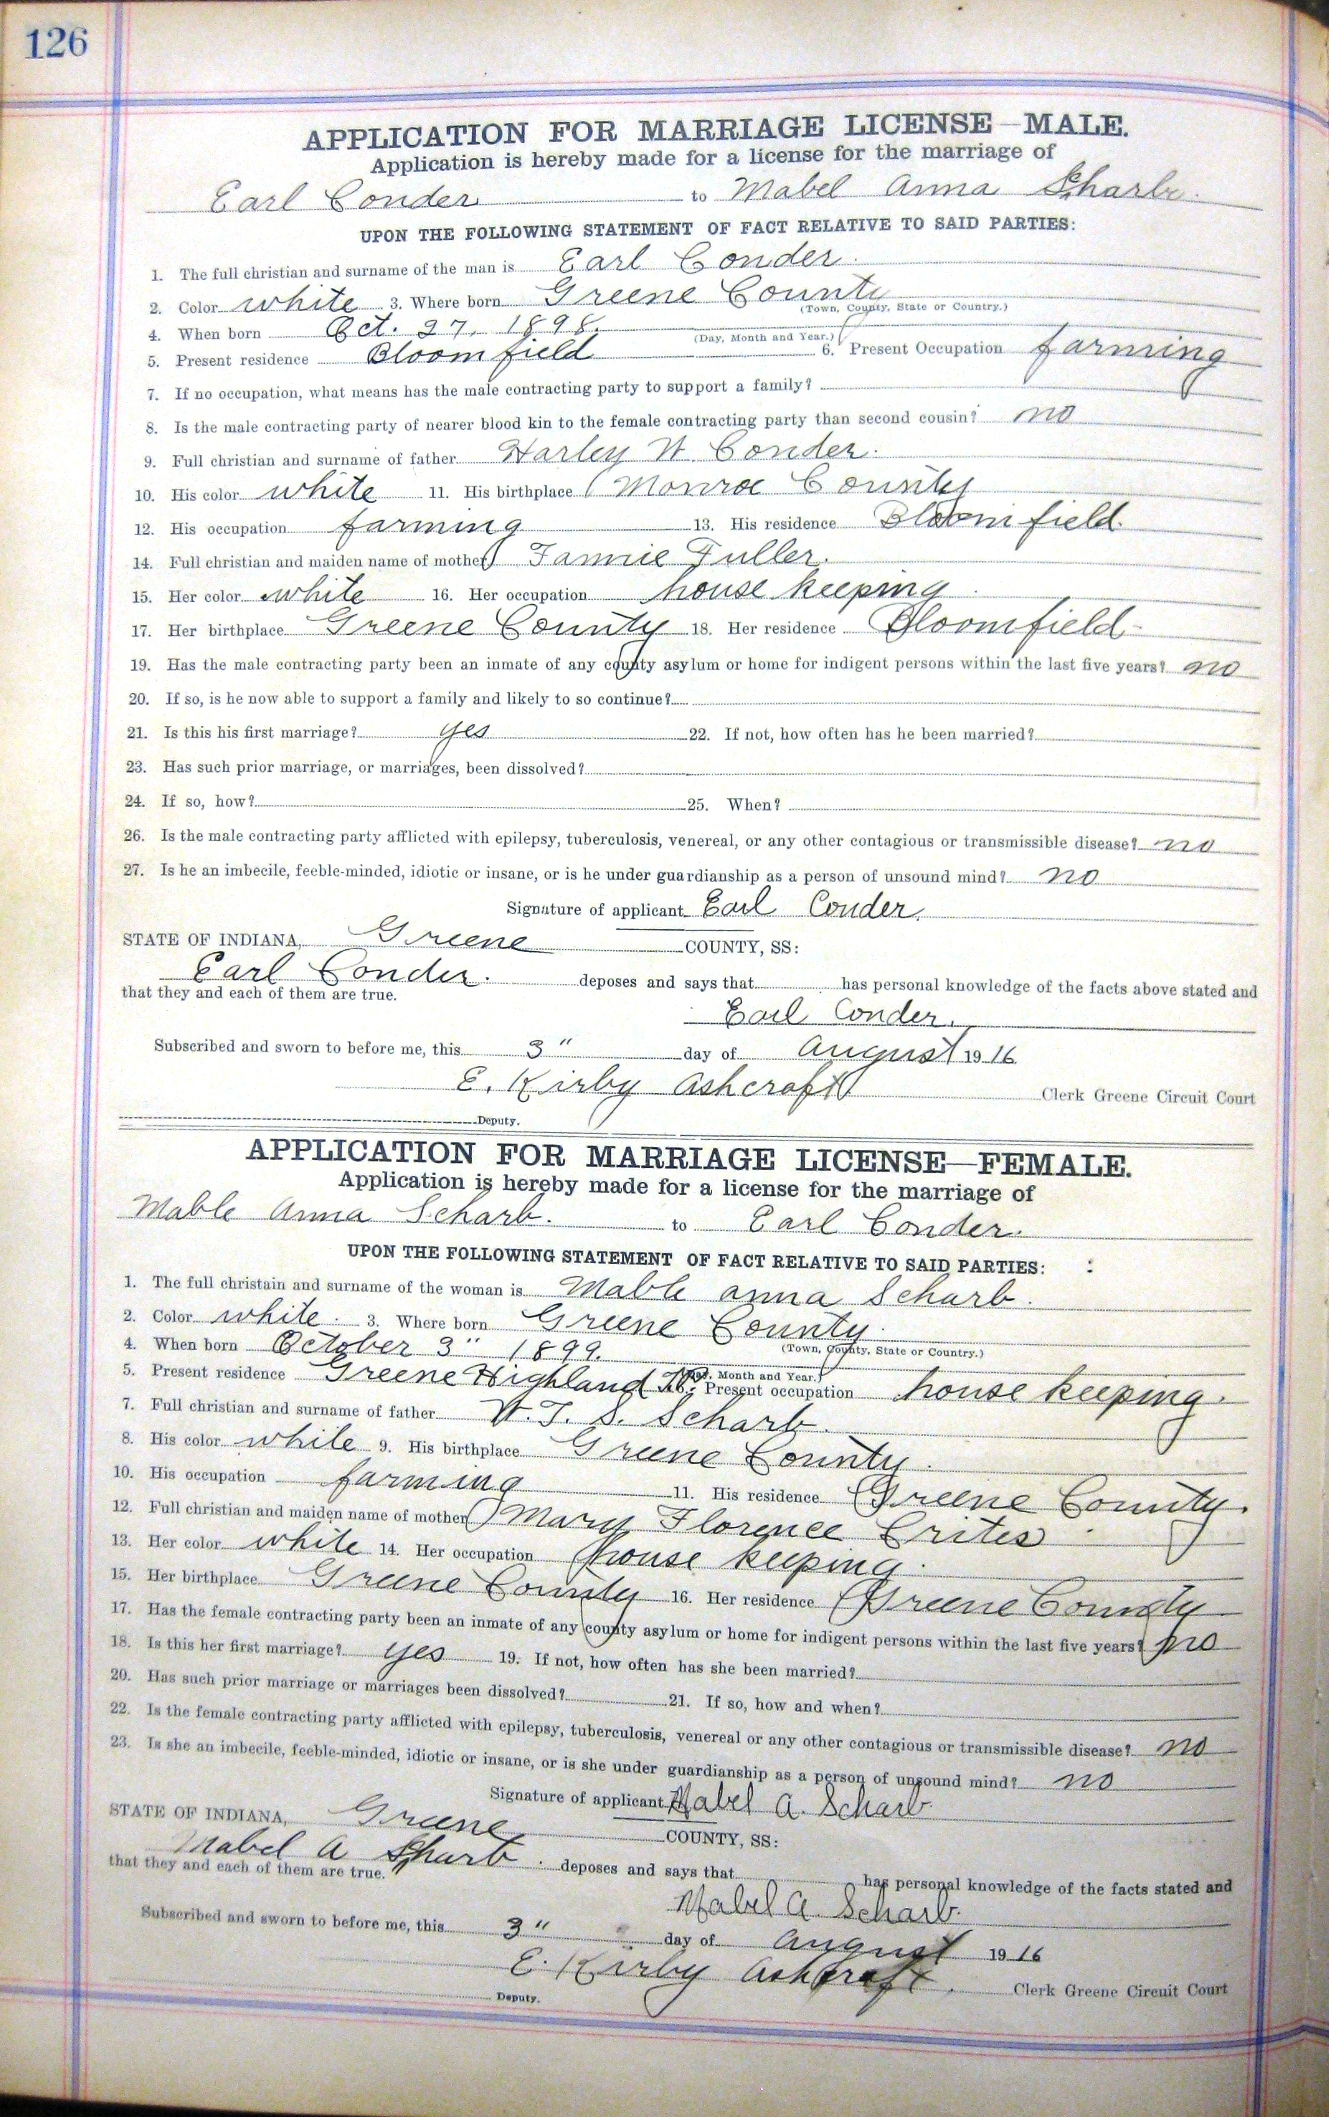 126
APPLICATION FOR MARRIAGE LICENSE—MALE.
Application is hereby made for a license for the marriage of
Earl Conder to Mabel Anna Scharb.
UPON THE FOLLOWING STATEMENT OF FACT RELATIVE TO SAID PARTIES:
1. The full christian and surname of the man is Earl Conder.
2. Color white 3. Where born Greene County
(Town, County, State or Country.)
4. When born Oct. 27, 1898.
(Day, Month and Year.)
5. Present residence Bloomfield 6. Present Occupation farming
7. If no occupation, what means has the male contracting party to support a family?
8. Is the male contracting party of nearer blood kin to the female contracting party than second cousin? no
9. Full christian and surname of father Harley W. Conder.
10. His color white 11. His birthplace Monroe County
12. His occupation farming 13. His residence Bloomfield.
14. Full christian and maiden name of mother Fannie Fuller.
15. Her color white 16. Her occupation house keeping
17. Her birthplace Greene County 18. Her residence Bloomfield-
19. Has the male contracting party been an inmate of any county asylum or home for indigent persons within the last five years? no
20. If so, is he now able to support a family and likely to so continue?
21. Is this his first marriage? yes 22. If not, how often has he been married?
23. Has such prior marriage, or marriages, been dissolved?
24. If so, how? 25. When?
26. Is the male contracting party afflicted with epilepsy, tuberculosis, venereal, or any other contagious or transmissible disease? no
27. Is he an imbecile, feeble-minded, idiotic or insane, or is he under guardianship as a person of unsound mind? no
Signature of applicant Earl Conder.
STATE OF INDIANA, Greene COUNTY, SS:
Earl Conder. deposes and says that has personal knowledge of the facts above stated and
that they and each of them are true.
Earl Conder.
Subscribed and sworn to before me, this 3" day of August 1916
E. Kirby Ashcraft Clerk Greene Circuit Court
Deputy.
APPLICATION FOR MARRIAGE LICENSE—FEMALE.
Application is hereby made for a license for the marriage of
Mable Anna Scharb. to Earl Conder.
UPON THE FOLLOWING STATEMENT OF FACT RELATIVE TO SAID PARTIES:
1. The full christain and surname of the woman is Mable Anna Scharb.
2. Color white. 3. Where born Greene County.
(Town, County, State or Country.)
4. When born October 3" 1899.
(Day, Month and Year.)
5. Present residence Greene Highland 6. Present occupation house keeping.
7. Full christian and surname of father W. T. S. Scharb.
8. His color white 9. His birthplace Greene County.
10. His occupation farming 11. His residence Greene County.
12. Full christian and maiden name of mother Mary Florence Crites.
13. Her color white 14. Her occupation house keeping.
15. Her birthplace Greene County 16. Her residence Greene County
17. Has the female contracting party been an inmate of any county asylum or home for indigent persons within the last five years? no
18. Is this her first marriage? yes 19. If not, how often has she been married?
20. Has such prior marriage or marriages been dissolved? 21. If so, how and when?
22. Is the female contracting party afflicted with epilepsy, tuberculosis, venereal or any other contagious or transmissible disease? no
23. Is she an imbecile, feeble-minded, idiotic or insane, or is she under guardianship as a person of unsound mind? no
Signature of applicant Mabel A. Scharb
STATE OF INDIANA, Greene COUNTY, SS:
Mabel A Scharb. deposes and says that has personal knowledge of the facts stated and
that they and each of them are true.
Mabel A. Scharb.
Subscribed and sworn to before me, this 3" day of August 1916
E. Kirby Ashcraft. Clerk Greene Circuit Court
Deputy.